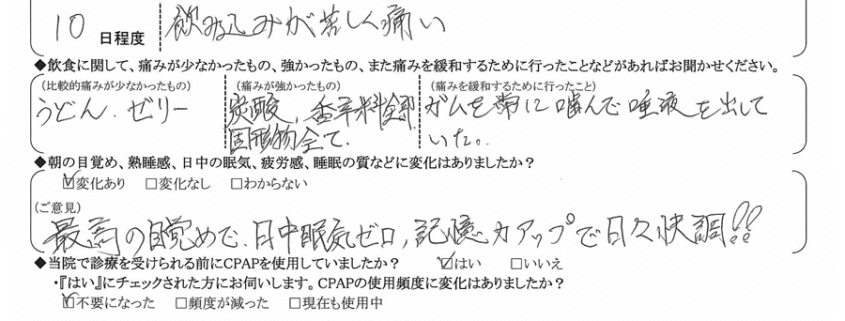 10 日程度 飲み込みが苦しく痛い
◆飲食に関して、痛みが少なかったもの、強かったもの、また痛みを緩和するために行ったことなどがあればお聞かせください。
(比較的痛みが少なかったもの) (痛みが強かったもの) (痛みを緩和するために行ったこと)
うどん、ゼリー 炭酸、香辛料全部 ガムを常に噛んで唾液を出して
固形物全て. いた。
◆朝の目覚め、熟睡感、日中の眠気、疲労感、睡眠の質などに変化はありましたか？
☑変化あり □変化なし □わからない
(ご意見)
最高の目覚めで、日中眠気ゼロ、記憶力アップで日々快調!!
◆当院で診療を受けられる前にCPAPを使用していましたか？ ☑はい □いいえ
・『はい』にチェックされた方にお伺いします。CPAPの使用頻度に変化はありましたか？
☑不要になった □頻度が減った □現在も使用中